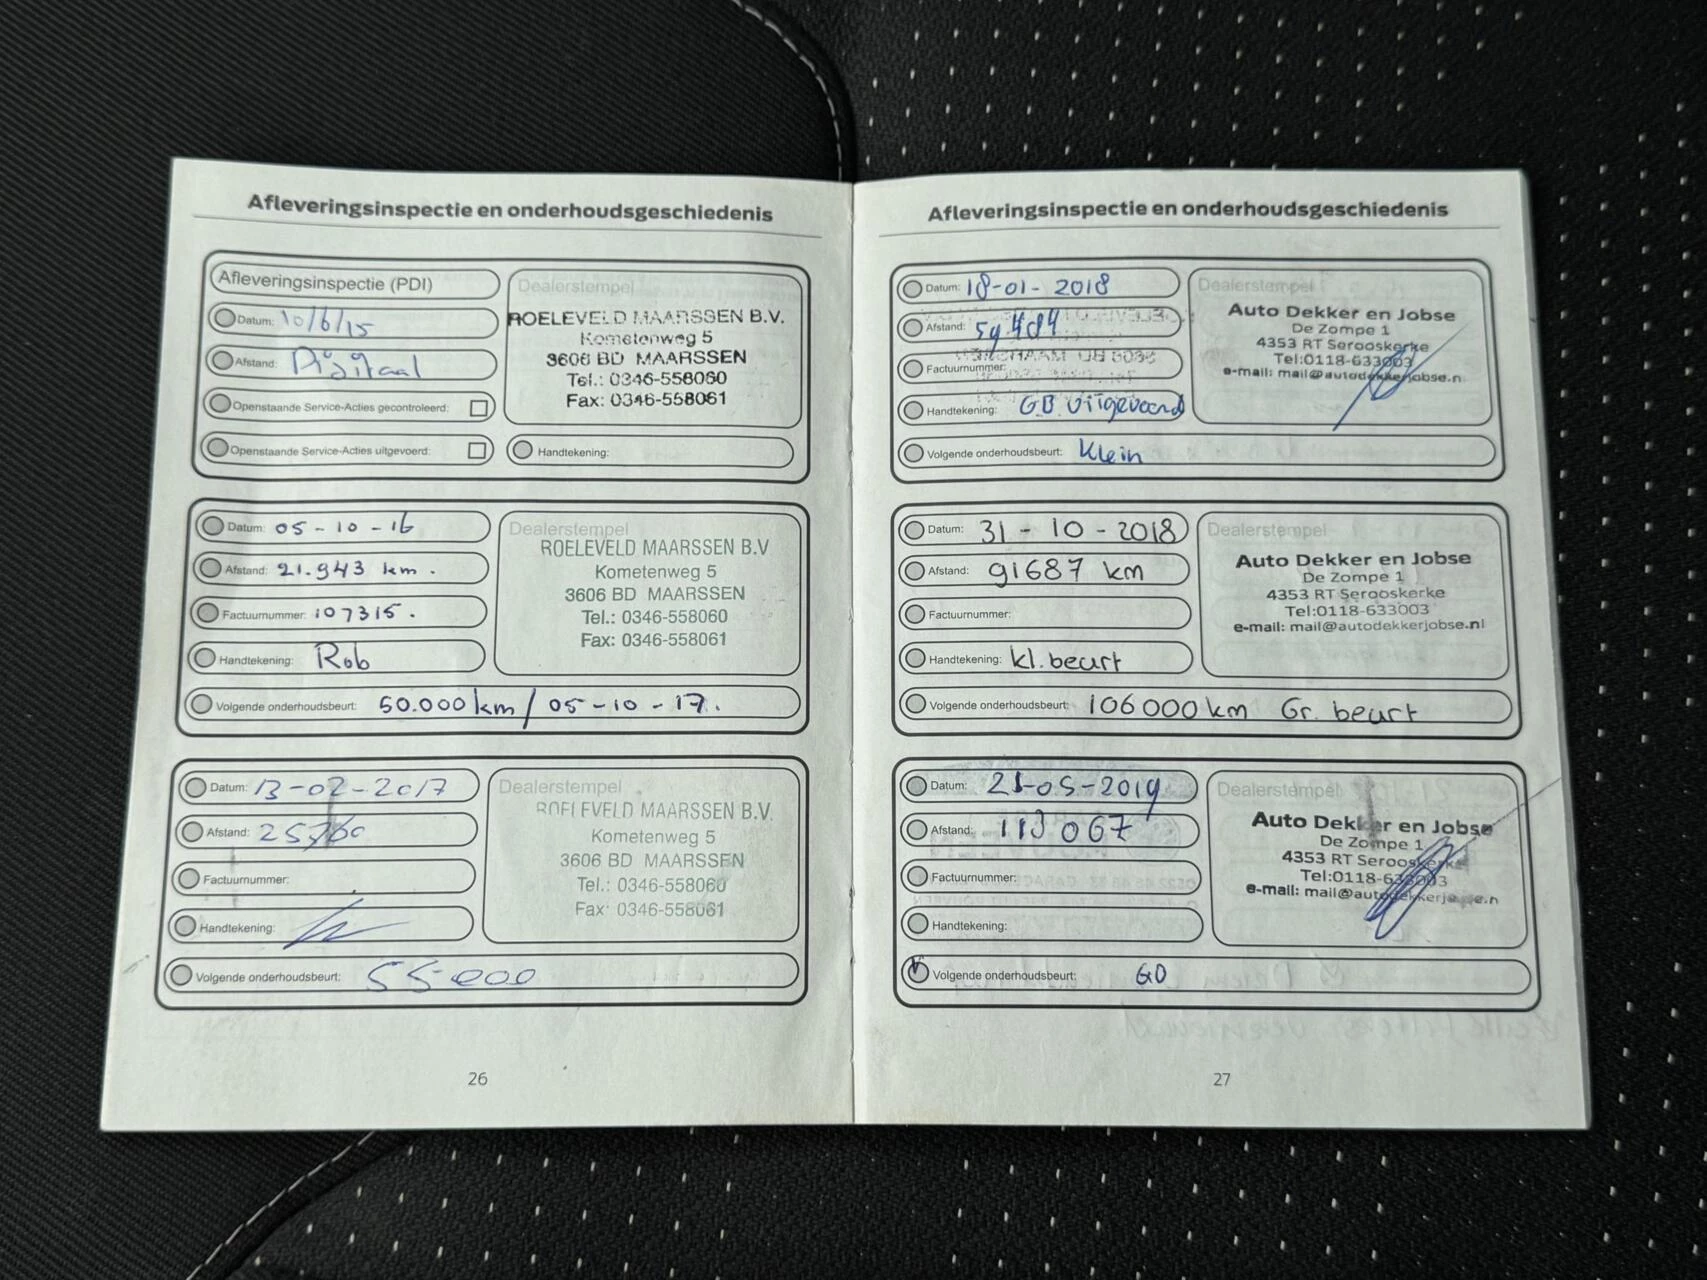 Afleveringsinspectie en onderhoudsgeschiedenis
Afleveringsinspectie (PDI)
Datum: 10/6/15
Afstand: Digitaal
Openstaande Service-Acties gecontroleerd:
Openstaande Service-Acties uitgevoerd:
Dealerstempel
ROELEVELD MAARSSEN B.V.
Kometenweg 5
3606 BD MAARSSEN
Tel.: 0346-558060
Fax: 0346-558061
Handtekening:
Datum: 05-10-16
Afstand: 21.943 km.
Factuurnummer: 107315.
Handtekening: Rob
Dealerstempel
ROELEVELD MAARSSEN B.V
Kometenweg 5
3606 BD MAARSSEN
Tel.: 0346-558060
Fax: 0346-558061
Volgende onderhoudsbeurt: 50.000 km / 05-10-17.
Datum: 13-02-2017
Afstand:
Factuurnummer:
Handtekening:
Dealerstempel
ROELEVELD MAARSSEN B.V.
Kometenweg 5
3606 BD MAARSSEN
Tel.: 0346-558060
Fax: 0346-558061
Volgende onderhoudsbeurt: 55000
26
Afleveringsinspectie en onderhoudsgeschiedenis
Datum: 18-01-2018
Afstand:
Factuurnummer:
Handtekening: GB uitgevoerd
Dealerstempel
Auto Dekker en Jobse
De Zompe 1
4353 RT Serooskerke
Tel:0118-633003
e-mail: mail@autodekkerjobse.n
Volgende onderhoudsbeurt: Klein
Datum: 31-10-2018
Afstand: 91687 km
Factuurnummer:
Handtekening: kl. beurt
Dealerstempel
Auto Dekker en Jobse
De Zompe 1
4353 RT Serooskerke
Tel:0118-633003
e-mail: mail@autodekkerjobse.nl
Volgende onderhoudsbeurt: 106000 km Gr. beurt
Datum: 21-05-2019
Afstand: 110 067
Factuurnummer:
Handtekening:
Dealerstempel
Auto Dekker en Jobse
De Zompe 1
4353 RT Serooskerke
Tel:0118-633003
e-mail: mail@autodekkerjobse.n
Volgende onderhoudsbeurt: GO
27